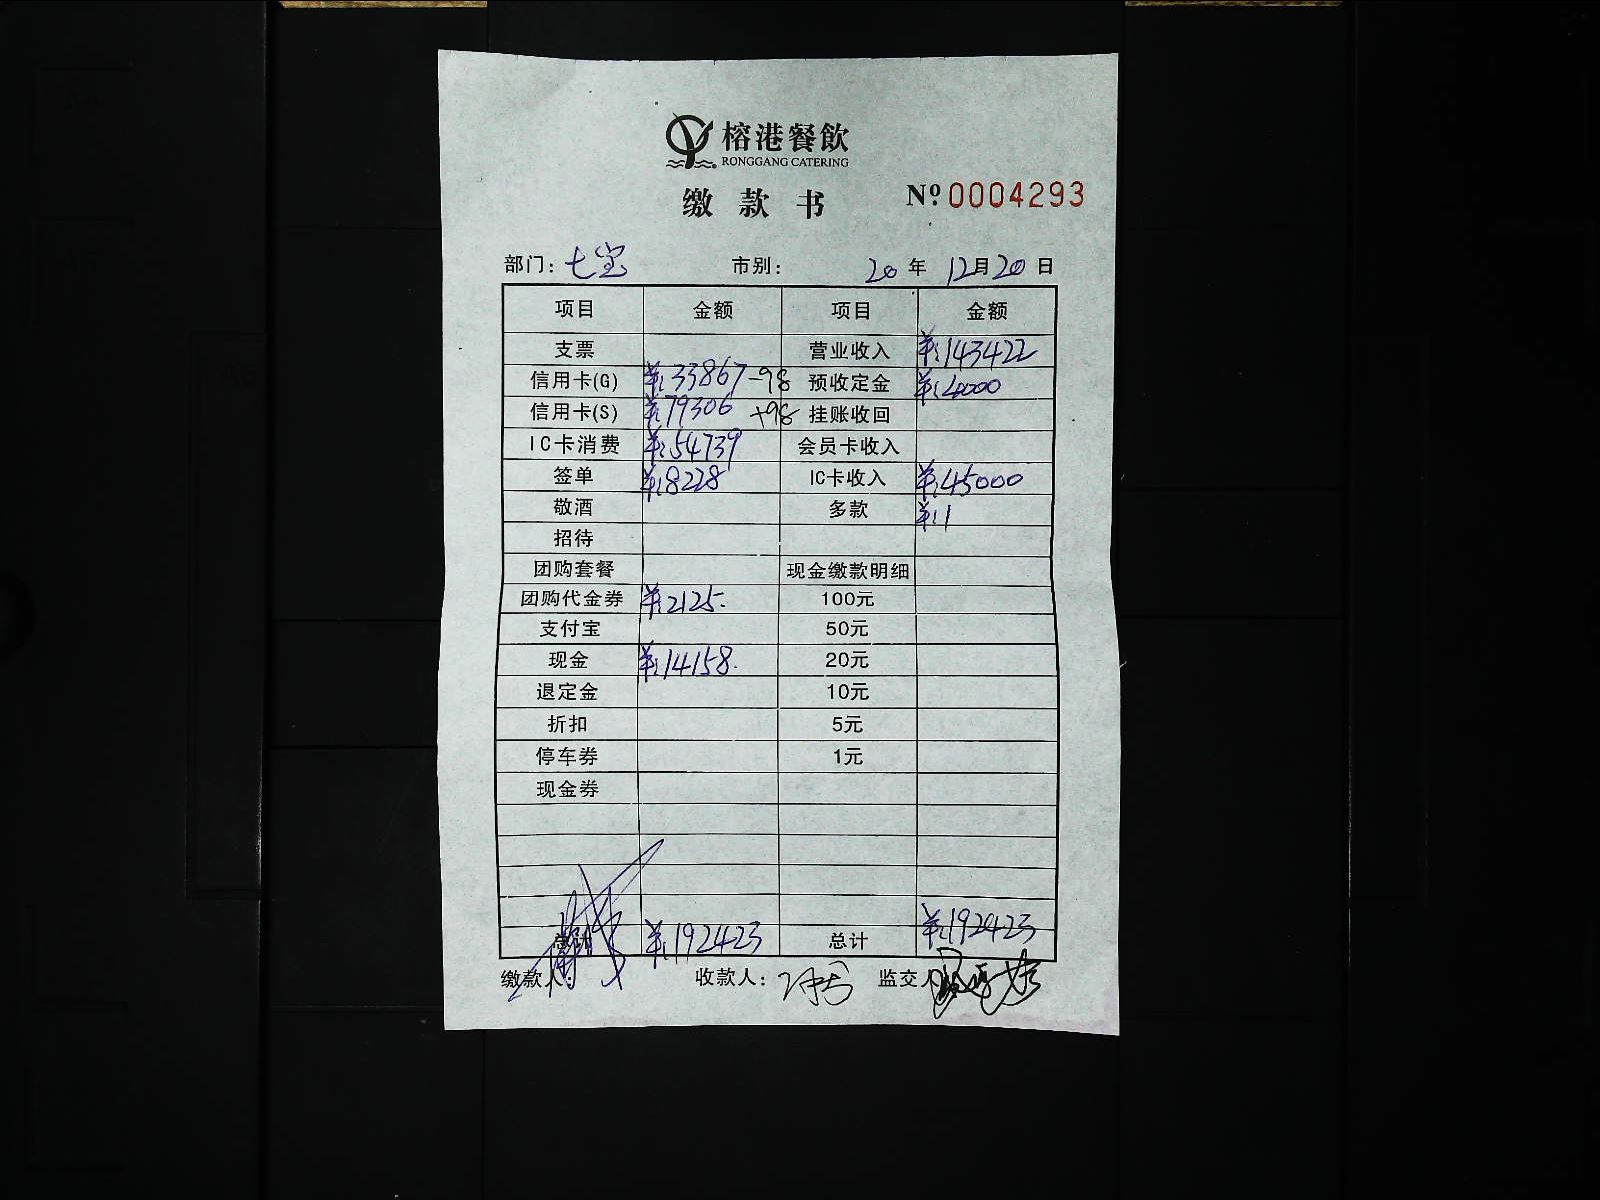 榕港餐飲
RONGGANG CATERING
缴款书 Nº 0004293
部门：七宝 市别： 20年12月20日
项目 金额 项目 金额
支票 营业收入 ¥:143422
信用卡(G) ¥:33867 -98 预收定金 ¥:4000
信用卡(S) ¥:79306 +98 挂账收回
IC卡消费 ¥:54739 会员卡收入
签单 ¥:8228 IC卡收入 ¥:45000
敬酒 多款 ¥:1
招待
团购套餐 现金缴款明细
团购代金券 ¥:2125. 100元
支付宝 50元
现金 ¥:14158. 20元
退定金 10元
折扣 5元
停车券 1元
现金券
总计 ¥:192423 总计 ¥:192423
缴款人： 收款人： 监交人